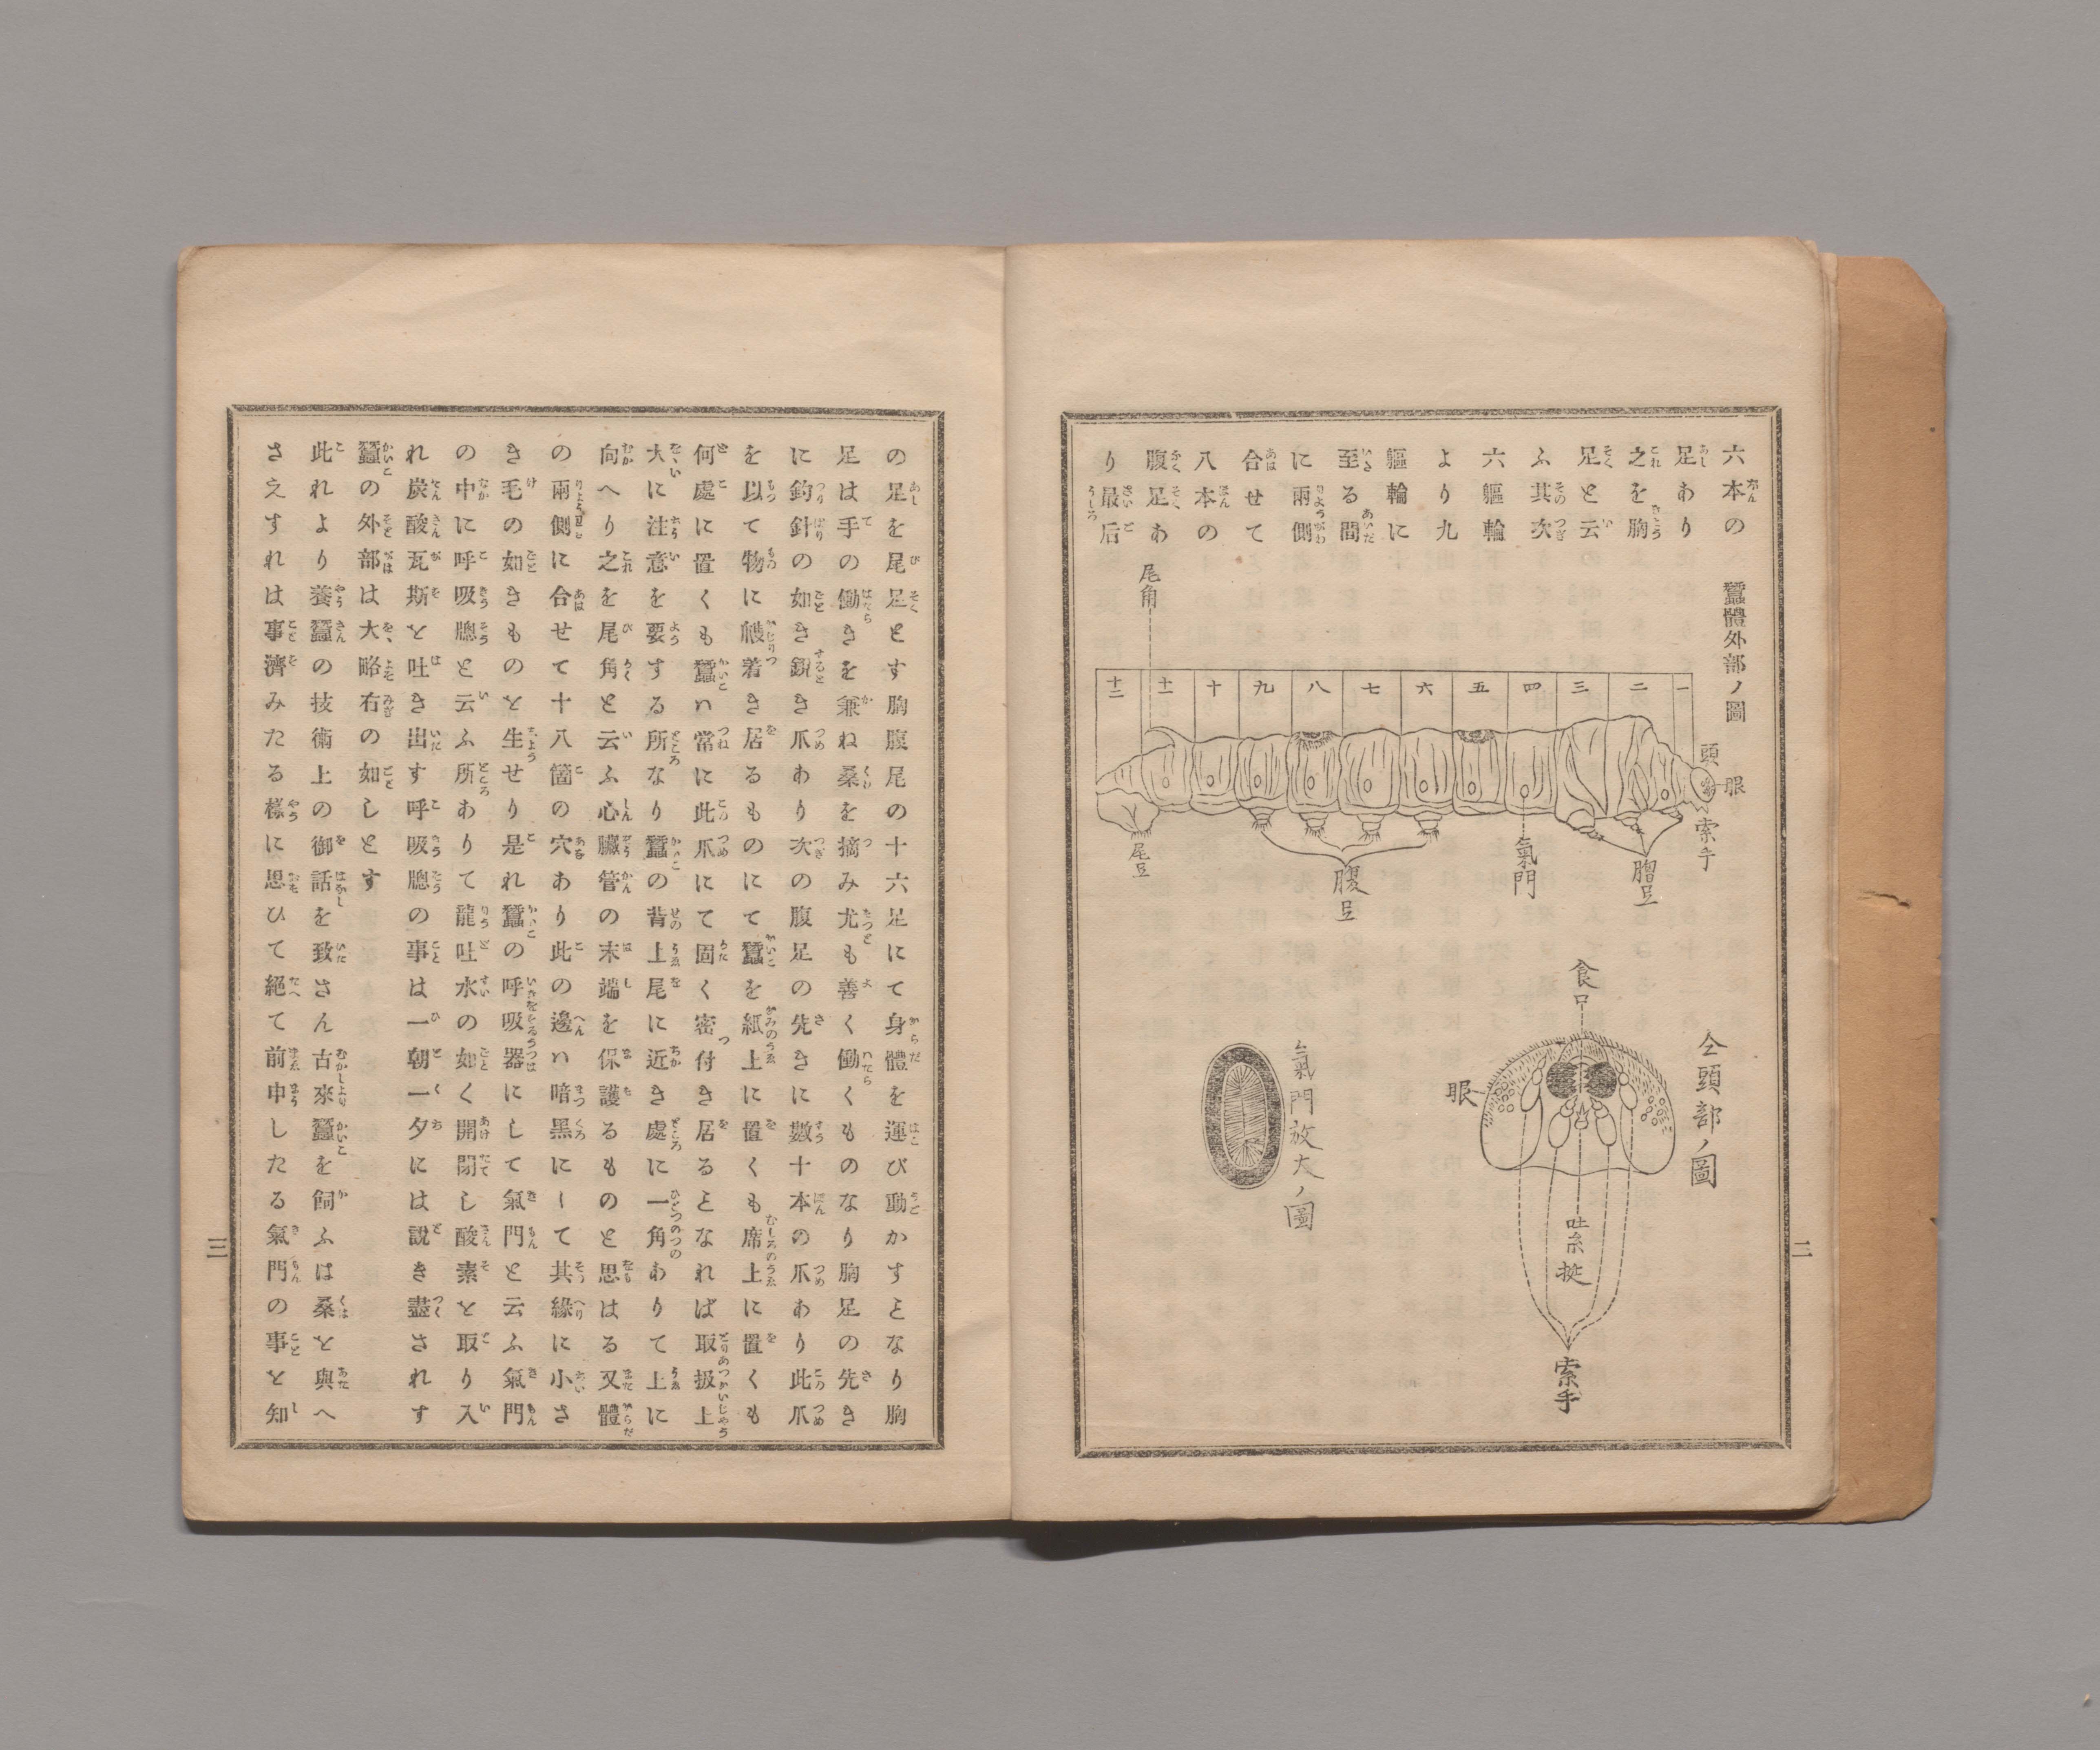 六本の
足あり
之を胸
足と云
ふ其次
六軀輪
より九
軀輪に
至る間
に兩側
合せて
八本の
腹足あ
り最后
蠶體外部ノ圖
一
二
三
四
五
六
七
八
九
十
十一
十二
尾角
頭
眼
索手
胸足
氣門
腹足
尾足
仝頭部ノ圖
食口
眼
吐糸
索手
氣門放大ノ圖
二
の足を尾足とす胸腹尾の十六足にて身體を運び動かすとなり胸
足は手の働きを兼ね桑を摘み尤も善く働くものなり胸足の先き
に釣針の如き銳き爪あり次の腹足の先きに數十本の爪あり此爪
を以て物に着き居るものにて蠶を紙上に置くも席上に置くも
何處に置くも蠶ハ當に此爪にて固く密付き居るとなれば取扱上
大に注意を要する所なり蠶の背上尾に近き處に一角ありて上に
向へり之を尾角と云ふ心臟管の末端を保護るものと思はる又體
の兩側に合せて十八箇の穴あり此の邊ハ暗黑にして其緣に小さ
き毛の如きものと生せり是れ蠶の呼吸器にして氣門と云ふ氣門
の中に呼吸聰と云ふ所ありて龍吐水の如く開閉し酸素と取り入
れ炭酸瓦斯と吐き出す呼吸聰の事は一朝一夕には説き盡されす
蠶の外部は大略右の如しとす
此れより養蠶の技術上の御話を致さん古來蠶を飼ふは桑と與へ
さえすれは事濟みたる樣に思ひて絕て前申したる氣門の事と知
三